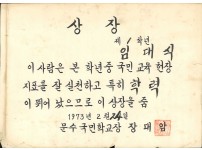 상 장
제 1 학년
임 대 식
이 사람은 본 학년중 국민 교육 헌장
지표를 잘 실천하고 특히 학력
이 뛰어 났으므로 이 상장을 줌
1973 년 2 월 24 일
문수 국민학교장 장 대